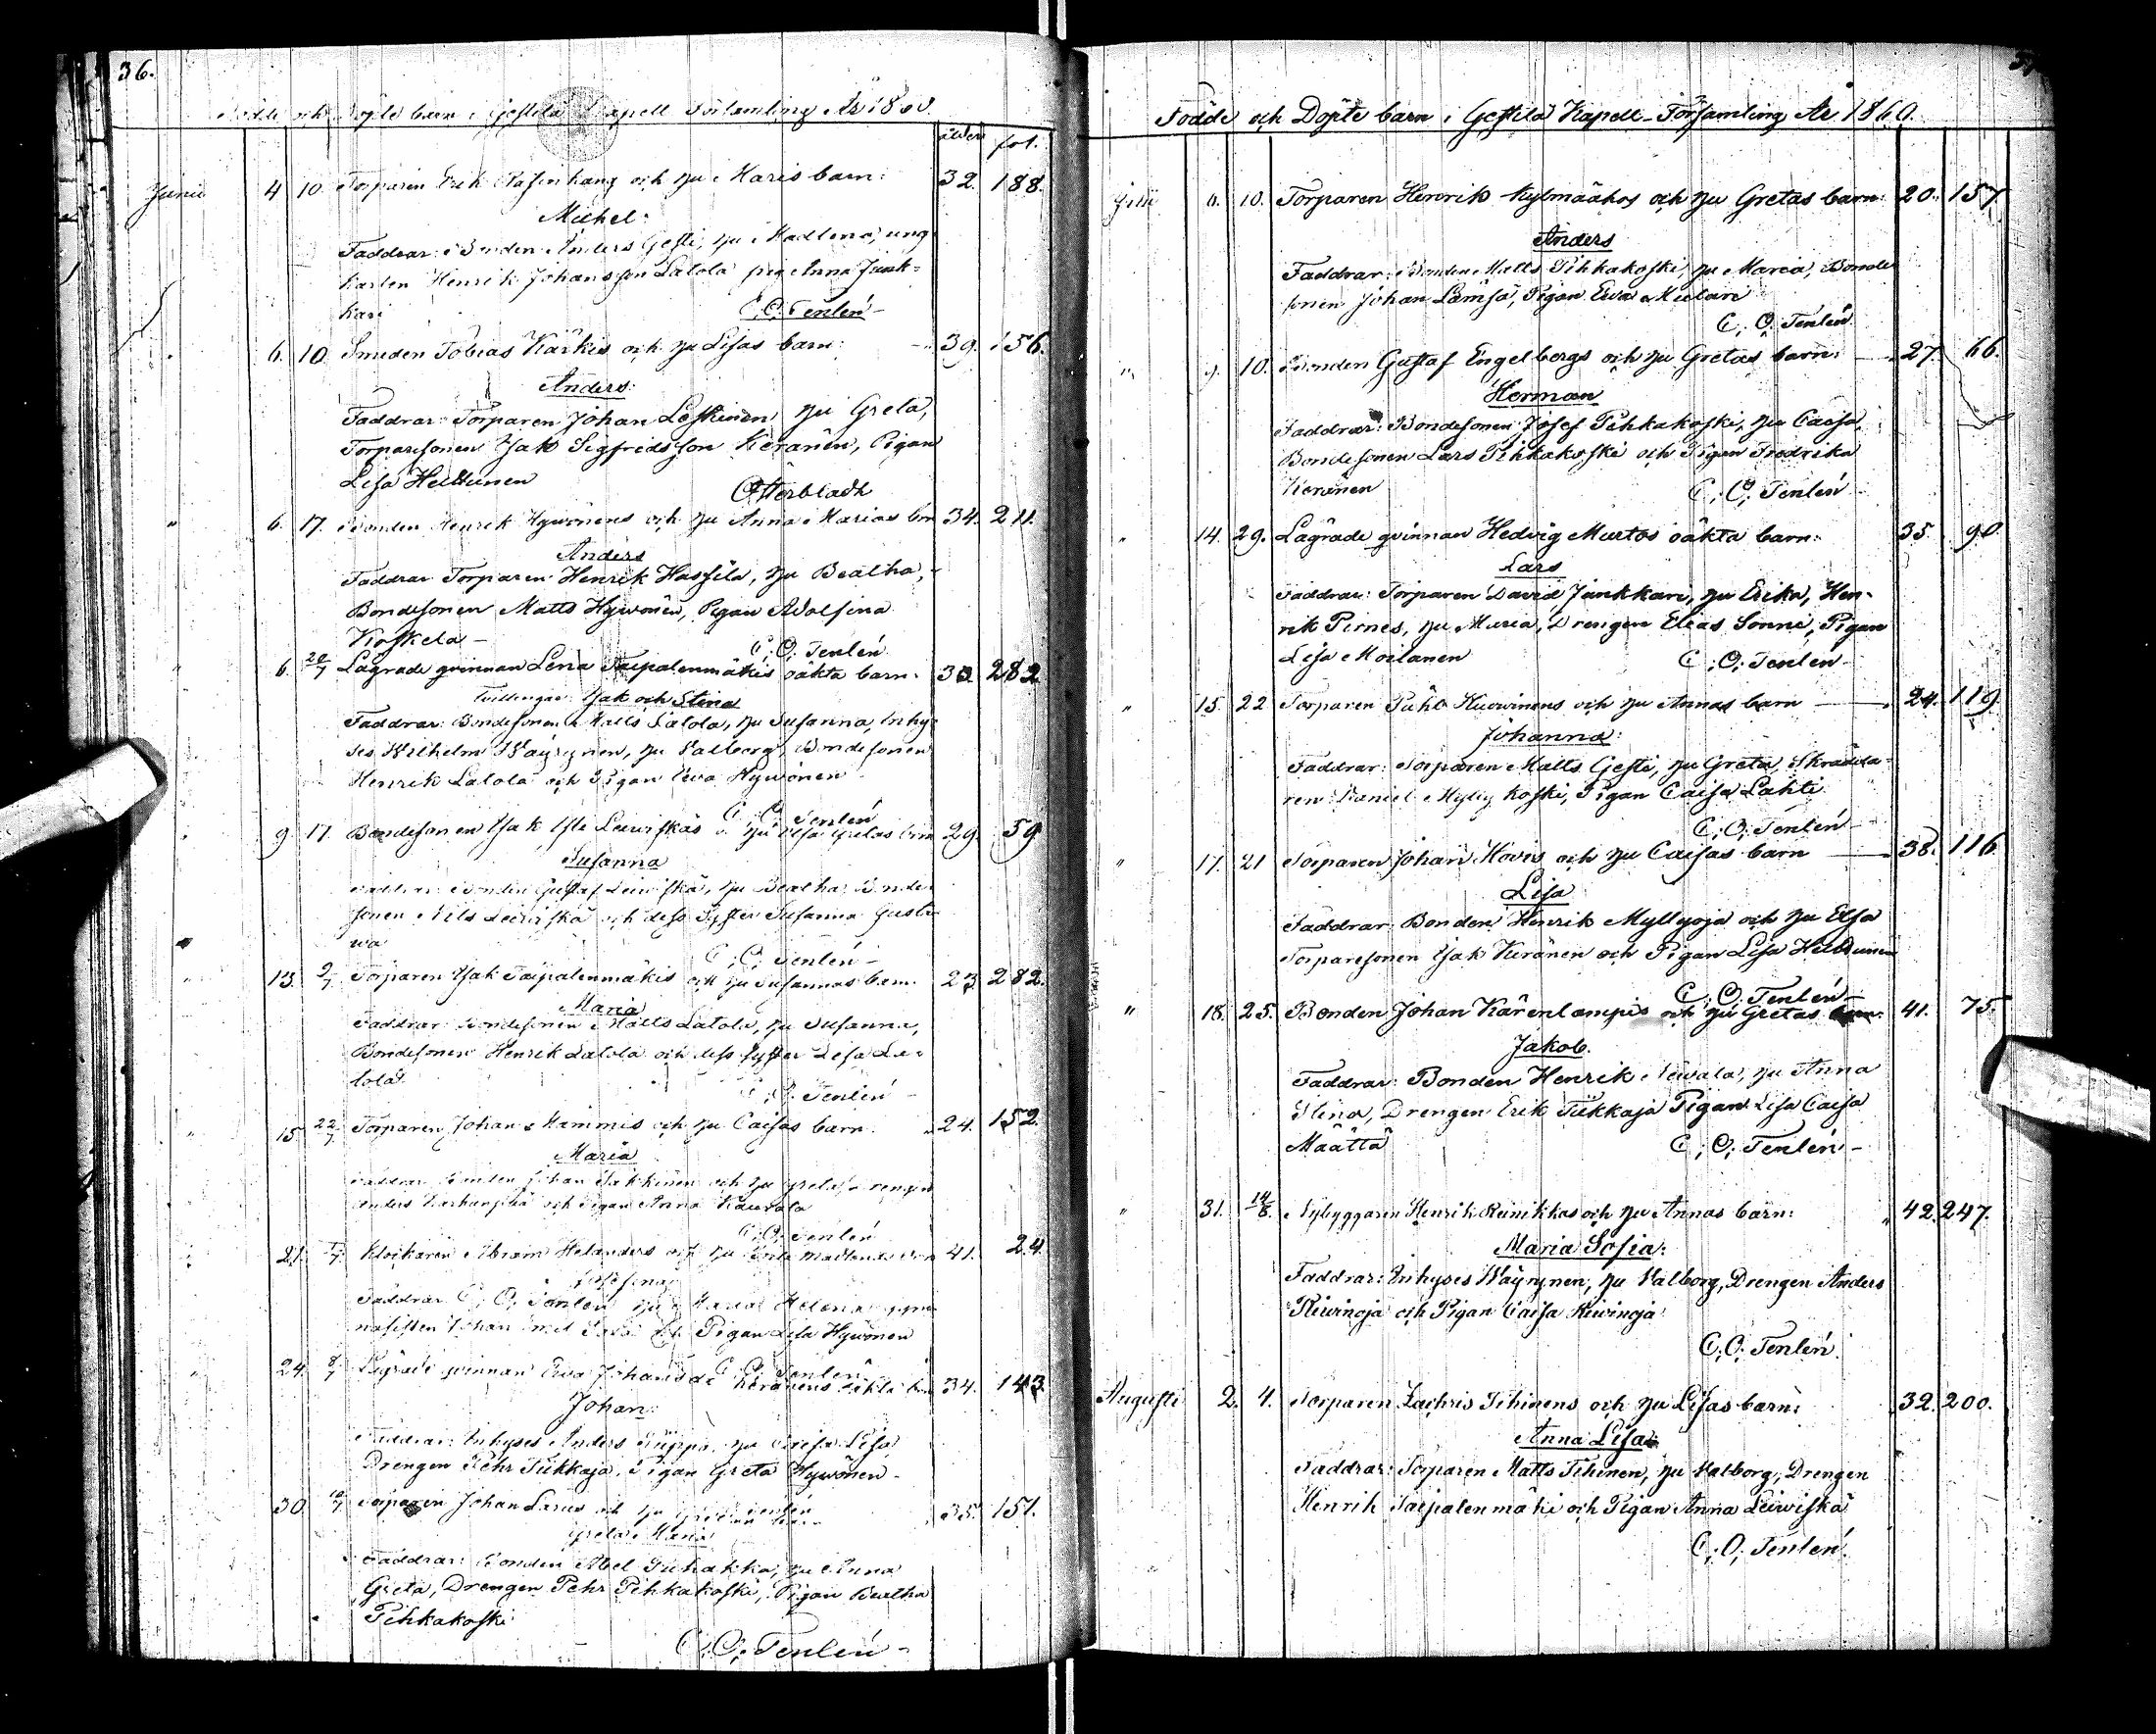 36.
Födde och Döpte barn i Gestilä Kapell Församling År 1860.
ålder fol.
Junii 4 10. Torparen Erik och hu Maris barn: 32. 188.
Michel:
Faddrar: Bonden Anders Gesti, hu Madlena, ung
karlen Henrik Johansson Latola pig Anna Junk=
kari C; O; Tenlén
6. 10. Smeden Tobias Kärkis och hu Lisas barn: 39. 156.
Anders:
Faddrar: Torparen Johan Leskinen hu Greta,
Torparesonen Isak Sigfridsson Keränen, Pigan
Lisa Heikkinen Österbladh
" 6. 17. Bonden Henrik Hywönens och hu Anna Marias barn 34. 211.
Anders
Faddrar Torparen Henrik Hassila, hu Beatha,
Bondesonen Matts Hywönen, Pigan Adolfina
Koskela C; O; Tenlén
" 6. 20/7 Lägrade qvinnan Lena Taipalenmäkis oäkta barn. 30. 282
Tvillingar: Isak och Stina
Faddrar: Bondesonen Matts Latola, hu Susanna, Inhy=
ses Wilhelm Wäyrynen, hu Valborg, Bondesonen
Henrik Latola och Pigan Ewa Hywönen
C; O; Tenlén
9 17. Bondesonen Isak Leiwiskäs o hu Gretas barn 29. 59
Susanna
Faddrar: Bonden Gustaf Leiwiskä, hu Beatha Bonde
sonen Nils Leiwiskä och dess Syster Susanna Gusta
wa C; O; Tenlén
13. 9/7 Torparen Isak Taipalenmäkis och hu Susannas barn. 23 282.
Maria
Faddrar: Bondesonen Matts Latola, hu Susanna,
Bondesonen Henrik Latola och dess syster Lisa La=
tola C; O; Tenlén
15 22/7 Torparen Johan Mammis och hu Caisas barn. 24. 152.
Maria
Faddrar Bonden Johan och hu Greta, Drengen
Anders och Pigan Anna
C; O; Tenlén
21. Klockaren Abram Helanders och hu Madlenas barn 41. 24.
Josefina
Faddrar C; O; Tenlén hu Maria Helena, gym=
nasisten Johan och Pigan Lisa Hywönen
C; O; Tenlén
24. 8/7 Lägrade qvinnan Ewa Johansd: Keränens oäkta barn 34. 143
Johan:
Faddrar: Inhyses Anders hu Caisa Lisa
Drengen Pehr Tikkaja, Pigan Greta Hywönen
C; O; Tenlén
30 10/7 Torparen Johan Larus och hu barn 35. 151.
Greta Maria
Faddrar: Bonden Abel Juhakka, hu Anna
Greta, Drengen Pehr Pihkakoski, Pigan Beatha
Pihkakoski
C; O; Tenlén
Födde och Döpte barn i Gestilä Kapell-Församling År 1860.
Julii 6. 10. Torparen Henrik Kylmäähos och hu Gretas barn: 20. 157
Anders
Faddrar: Bonden Matts Pihkakoski, hu Maria, Bonde
sonen Johan Lämsä, Pigan Ewa Mularé
C; O; Tenlén
" 9. 10. Bonden Gustaf Engelbergs och hu Gretas barn: 27. 66.
Herman
Faddrar: Bondesonen Josef Pihkakoski, hu Caisa,
Bondesonen Lars Pihkakoski och Pigan Fredrika
Keränen C; O; Tenlén
" 14. 29. Lägrade qvinnan Hedvig Murtos oäkta barn: 35. 90.
Lars
Faddrar: Torparen David Junkkari, hu Erika, Hen=
rik Pirnes, hu Maria, Drengen Elias Sonni, Pigan
Lisa Moilanen C; O; Tenlén
" 15. 22 Torparen Påhl Kuwinens och hu Annas barn 24. 119.
Johanna:
Faddrar: Torparen Matts Gesti, hu Greta, Skrädda=
ren Daniel Mylykoski, Pigan Caisa Lahti
C; O; Tenlén
" 17. 21 Torparen Johan Hovis och hu Caisas barn 38. 116
Lisa
Faddrar Bonden Henrik Myllyoja och hu Elsa
Torparesonen Isak Keränen och Pigan Lisa Heikkinen
C; O; Tenlén
" 18. 25. Bonden Johan Kärenlampis och hu Gretas barn. 41. 75.
Jakob.
Faddrar: Bonden Henrik Newala, hu Anna
Stina, Drengen Erik Tikkaja Pigan Lisa Caisa
Määttä C; O; Tenlén
" 31. 14/8. Nybyggaren Henrik Reinikkas och hu Annas barn: 42. 247.
Maria Sofia:
Faddrar: Inhyses Wäyrynen, hu Valborg, Drengen Anders
Kiwinoja och Pigan Caisa Kiwinoja
C; O; Tenlén
Augusti 2. 4. Torparen Zachris Tihinens och hu Lisas barn: 32. 200.
Anna Lisa
Faddrar: Torparen Matts Tihinen, hu Valborg, Drengen
Henrik Taipalenmäki och Pigan Anna Leiwiskä
C; O; Tenlén.